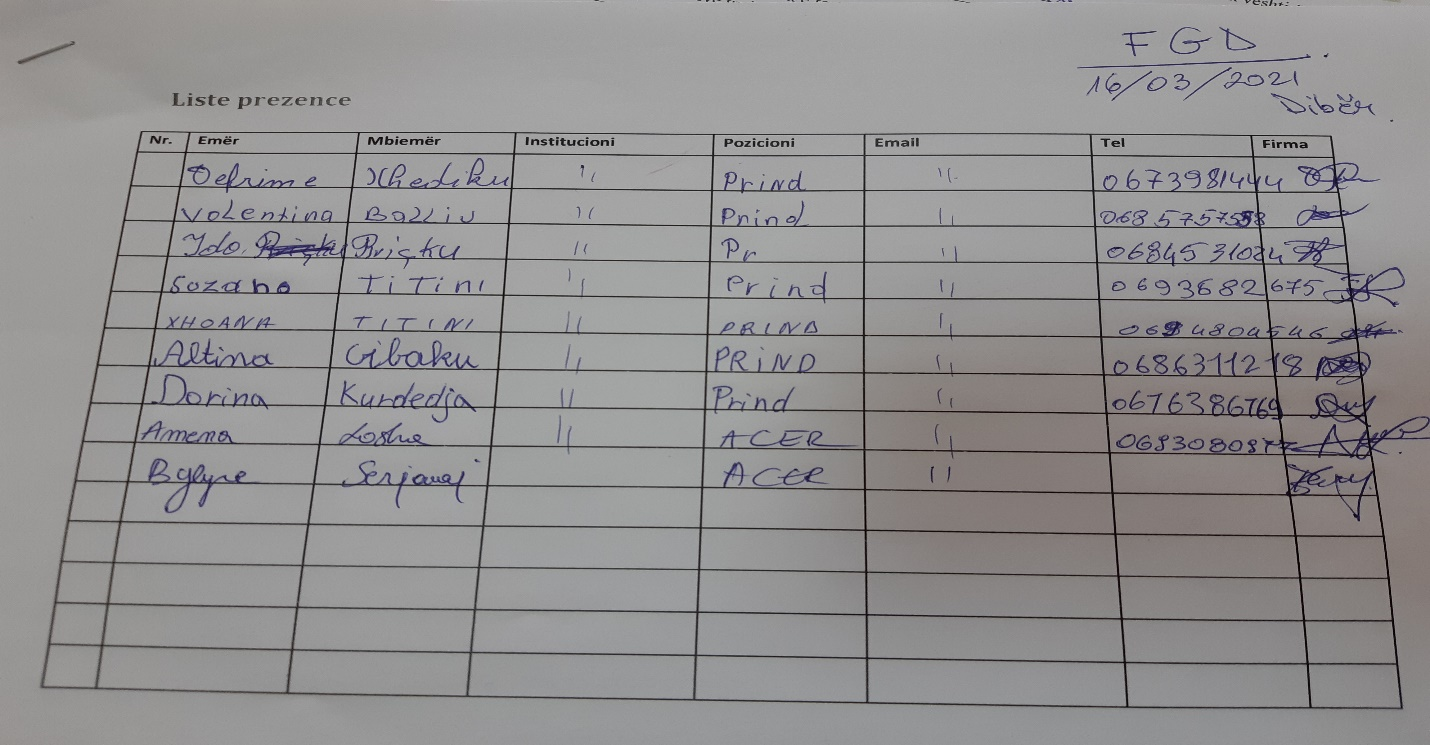 FGD
16/03/2021
Dibër.
Liste prezence
Nr. Emër Mbiemër Institucioni Pozicioni Email Tel Firma
Defrime Xhediku " Prind " 0673981444
Volentina Balliu " Prind "
Ido. Prișku " Pr " 0684531024
Sozano TiTini " Prind " 0693682675
XHOANA TITINI " PRIND "
Altina Cibaku " PRiND " 0686311218
Dorina Kurdedja " Prind " 0676386769
Amena Losha " ACER "
Bylyre Serjanaj ACER "